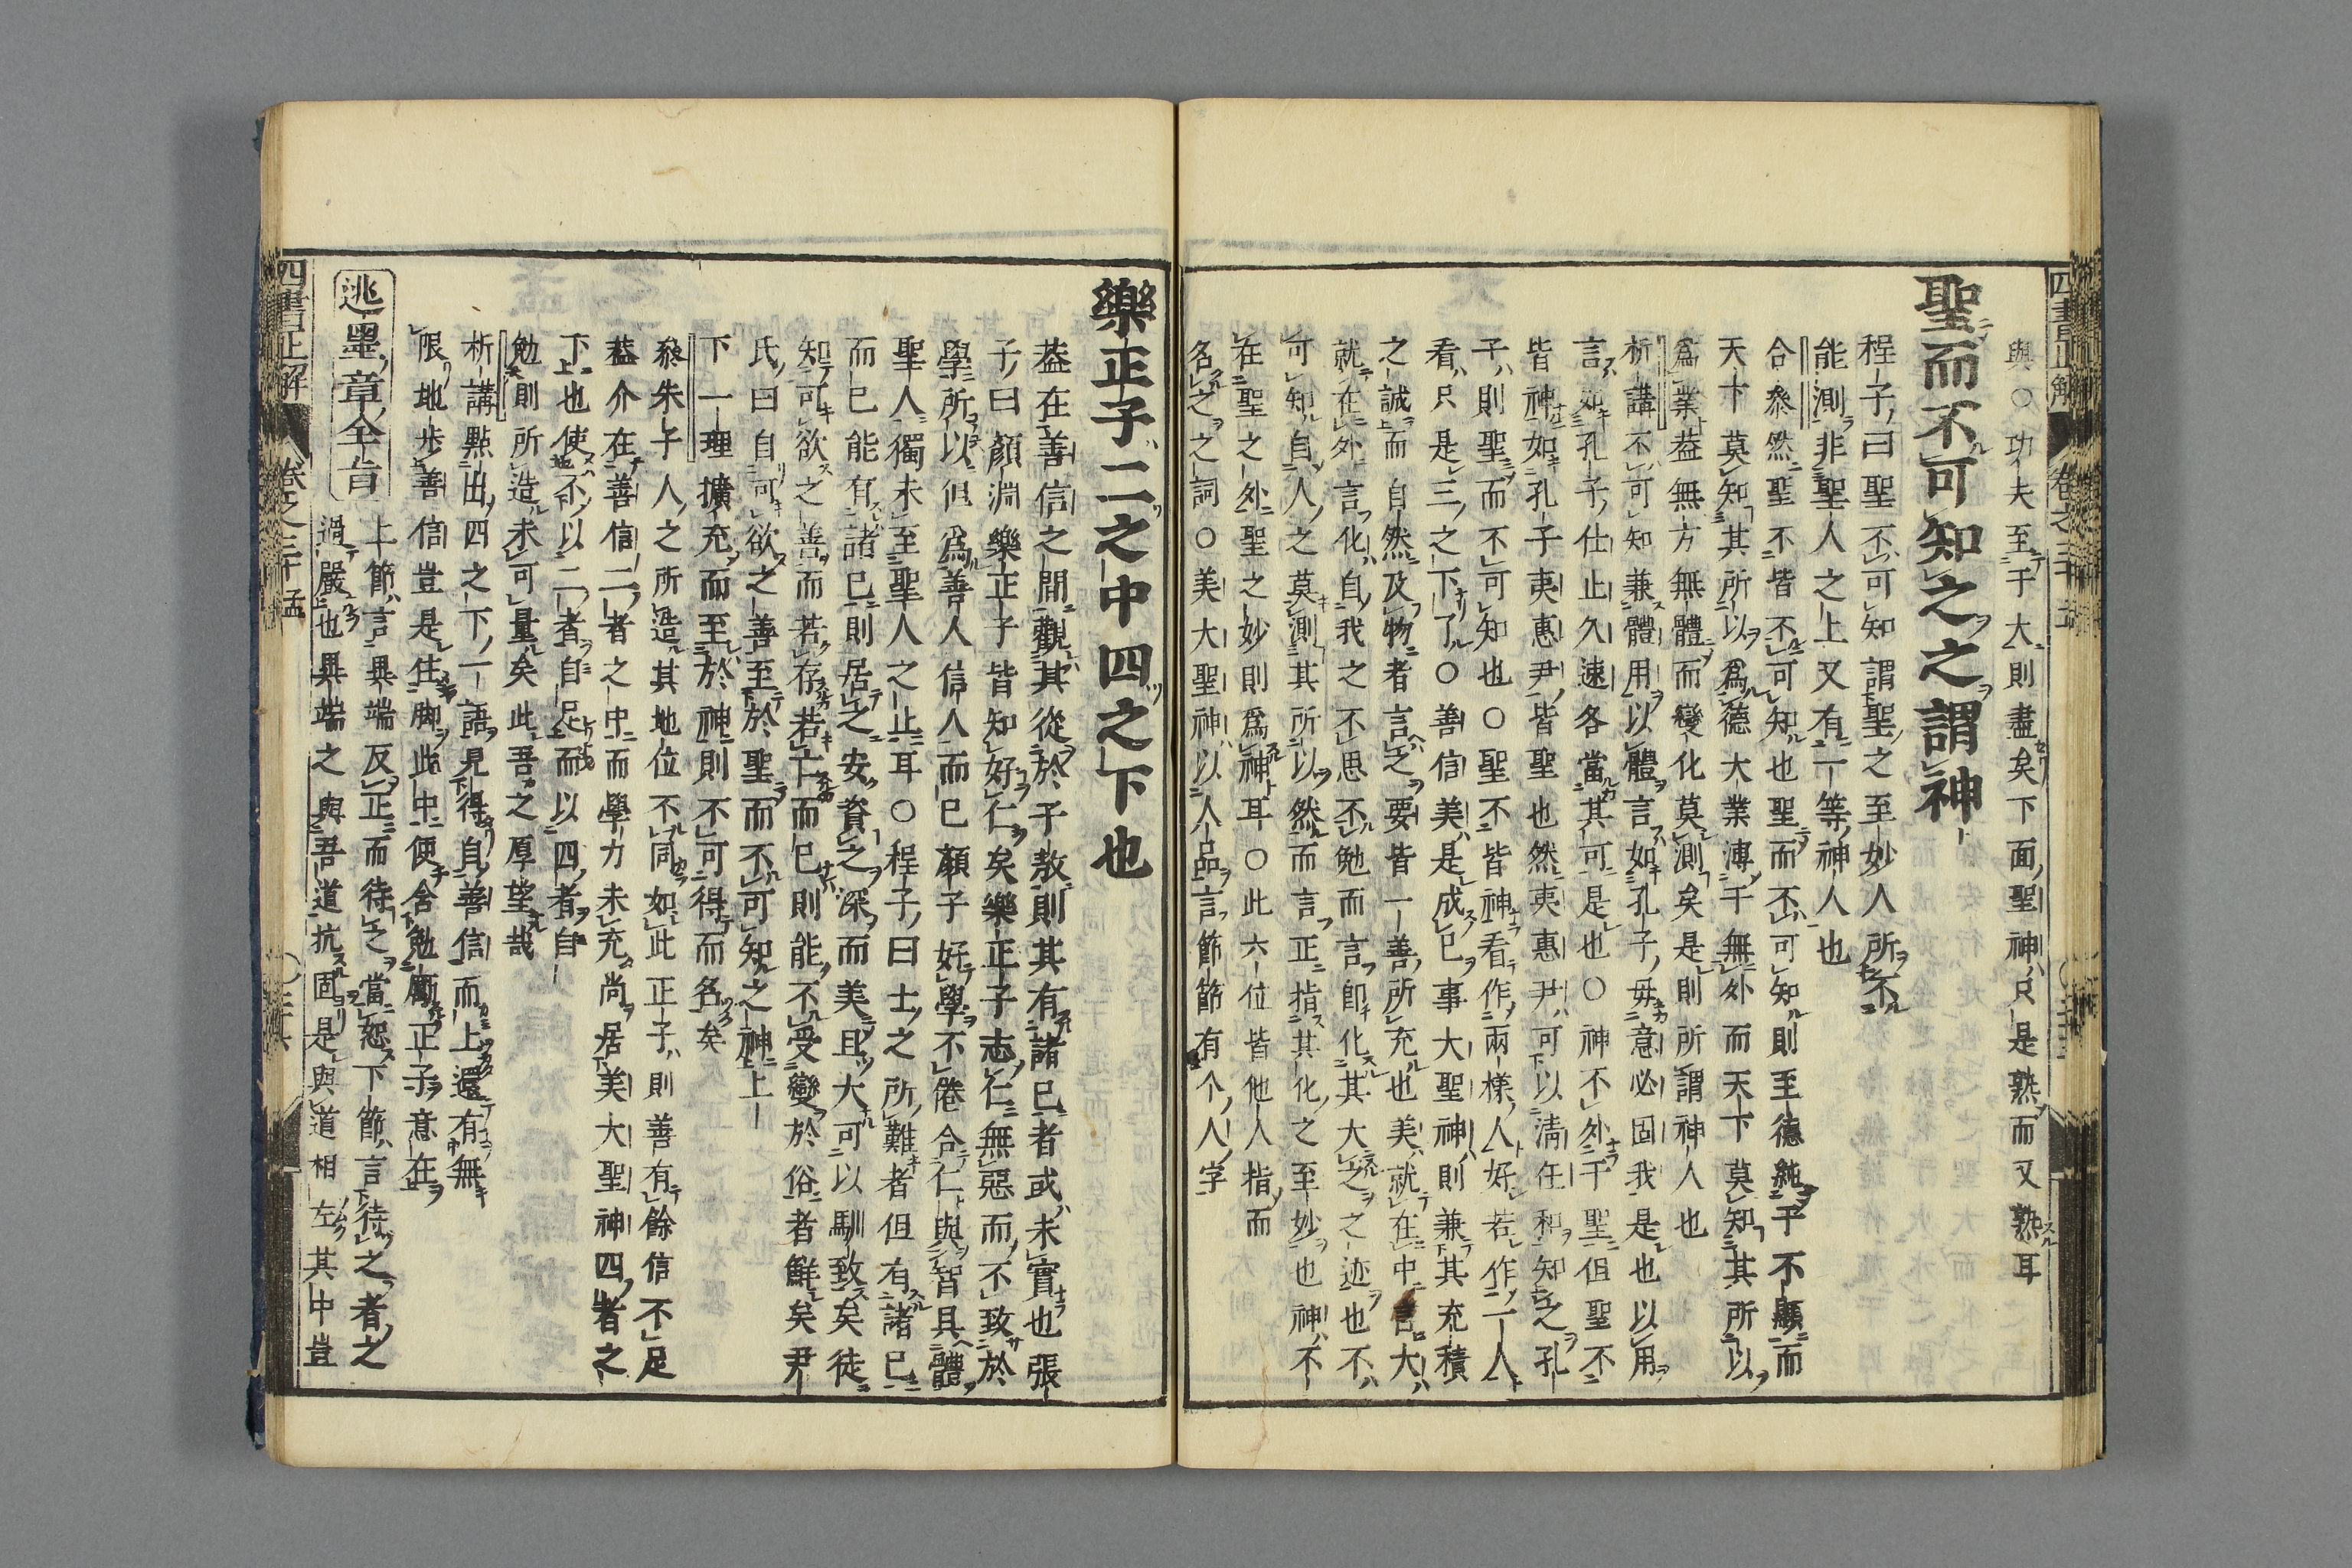 與○功夫至于大則盡矣下面聖神只是熟而又熟耳
聖而不可知之之謂神
程子曰聖不可知謂聖之至妙人所不
能測非聖人之上又有一等神人也
合參然聖不皆不可知也聖而不可知則至德純乎不顯而
天下莫知其所以爲德大業溥于無外而天下莫知其所以
爲業葢無方無體而變化莫測矣是則所謂神人也
析講不可知兼體用以體言如孔子毋意必固我是也以用
言如孔子仕止久速各當其可是也○神不外乎聖但聖不
皆神如孔子夷惠尹皆聖也然夷惠尹可以淸任和知之孔
子則聖而不可知也○聖不皆神看作兩樣人好若作一人
看只是三之下了○善信美是成已事大聖神則兼其充積
之誠而自然及物者言之要皆一善所充也美就在中言大
就在外言化自我之不思不勉而言卽化其大之之迹也不
可知自人之莫測其所以然而言正指其化之至妙也神不
在聖之外聖之妙則爲神耳○此六位皆他人指而
名之之詞○美大聖神以人品言節節有个人字
樂正子二之中四之下也
葢在善信之間觀其從於子敖則其有諸已者或未實也張
子曰顏淵樂正子皆知好仁矣樂正子志仁無惡而不致於
學所以但爲善人信人而已顏子好學不倦合仁與智具體
聖人獨未至聖人之止耳○程子曰士之所難者但有諸已
而已能有諸已則居之安資之深而美且大可以馴致矣徒
知可欲之善而若存若亡而已則能不受變於俗者鮮矣尹
氏曰自可欲之善至於聖而不可知之神上
下一理擴充而至於神則不可得而名矣
參朱子人之所造其地位不同如此正子則善有餘信不足
葢介在善信二者之中而學力未充尚居美大聖神四者之
下也使不以二者自足而以四者自
勉則所造未可量矣此吾之厚望哉
析講點出四之下一語見得自善信而上還有無
限地步善信豈是住脚此中便舍勉勵正子意在
逃墨章全旨
上節言異端反正而待之當恕下節言待之者之
過嚴也異端之與吾道抗固是與道相左其中豈
四書正解
卷之三十孟
四書正解